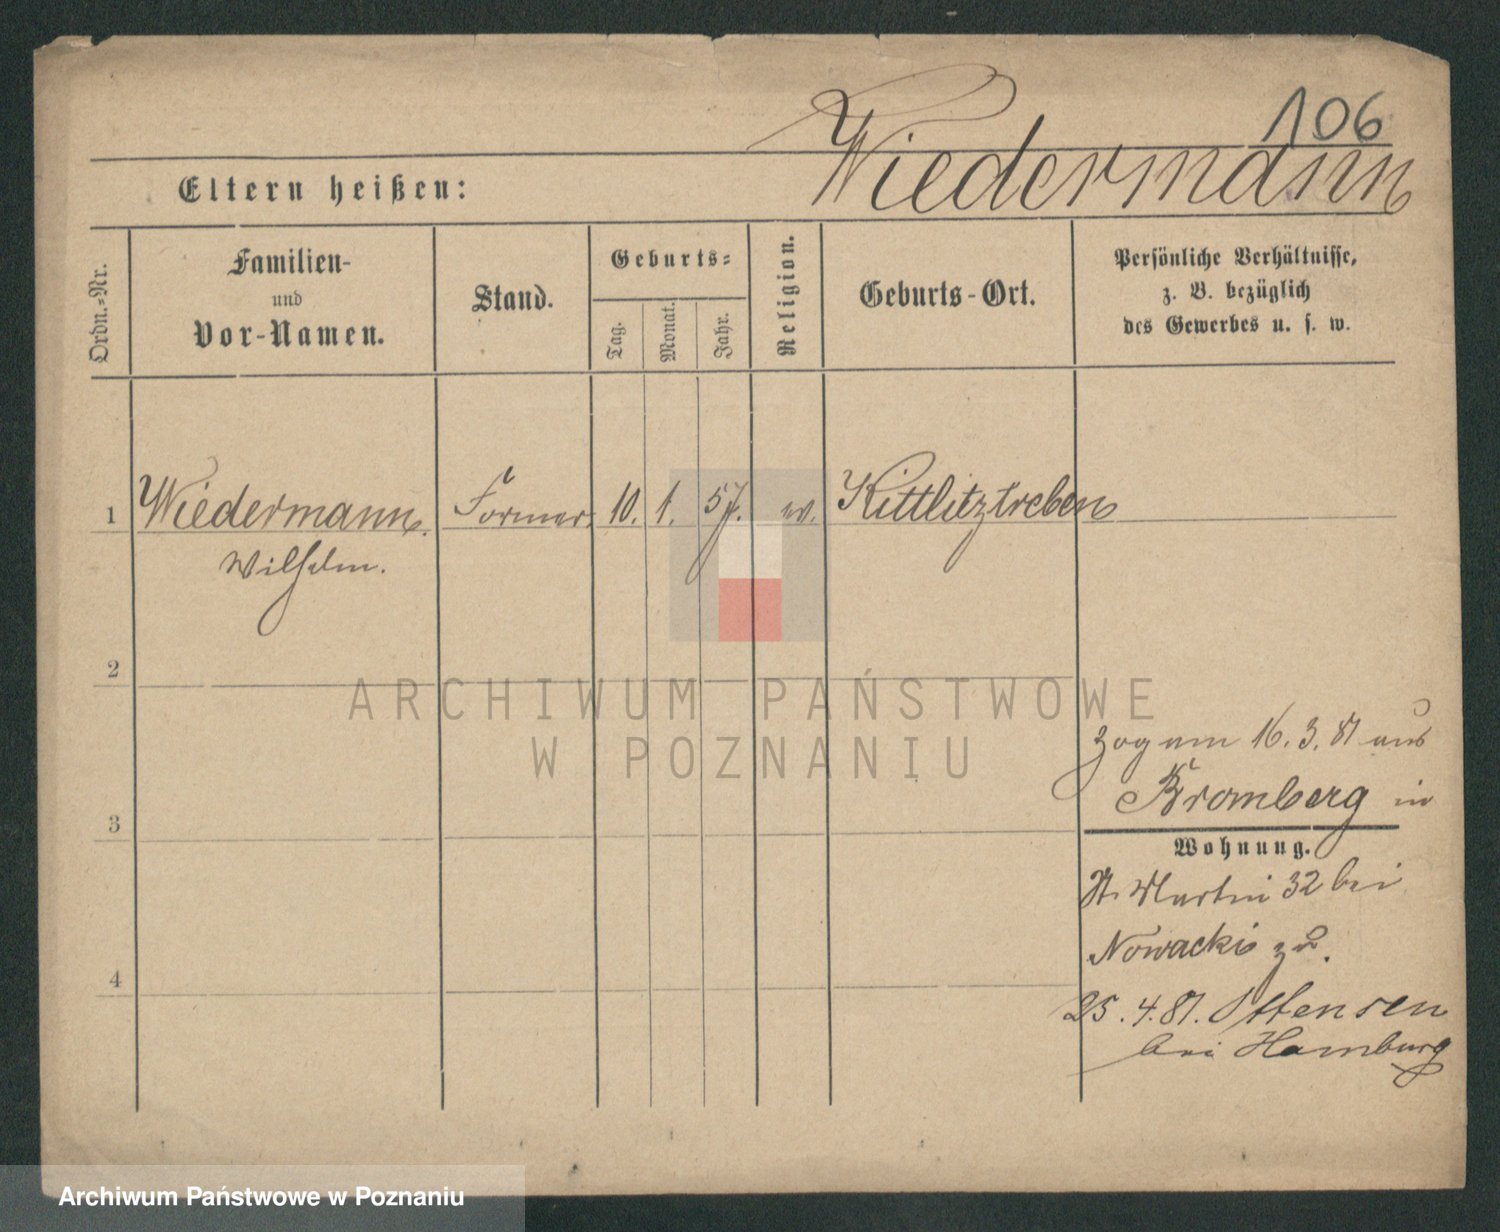 106
Wiedermann
Eltern heißen:
Ordn.-Nr.
Familien-
und
Vor-Namen.
Stand.
Geburts-
Tag.
Monat.
Jahr.
Religion.
Geburts-Ort.
Persönliche Verhältnisse,
z. B. bezüglich
des Gewerbes u. s. w.
1 Wiedermann Former 10. 1. 57. ev. Kittlitztreben
Wilhelm.
2
ARCHIWUM PAŃSTWOWE
W POZNANIU
zog am 16. 3. 81 aus
Bromberg in
3
Wohnung.
St. Martin 32 bei
Nowacki zu.
4
25. 4. 81. Ottensen
bei Hamburg
Archiwum Państwowe w Poznaniu